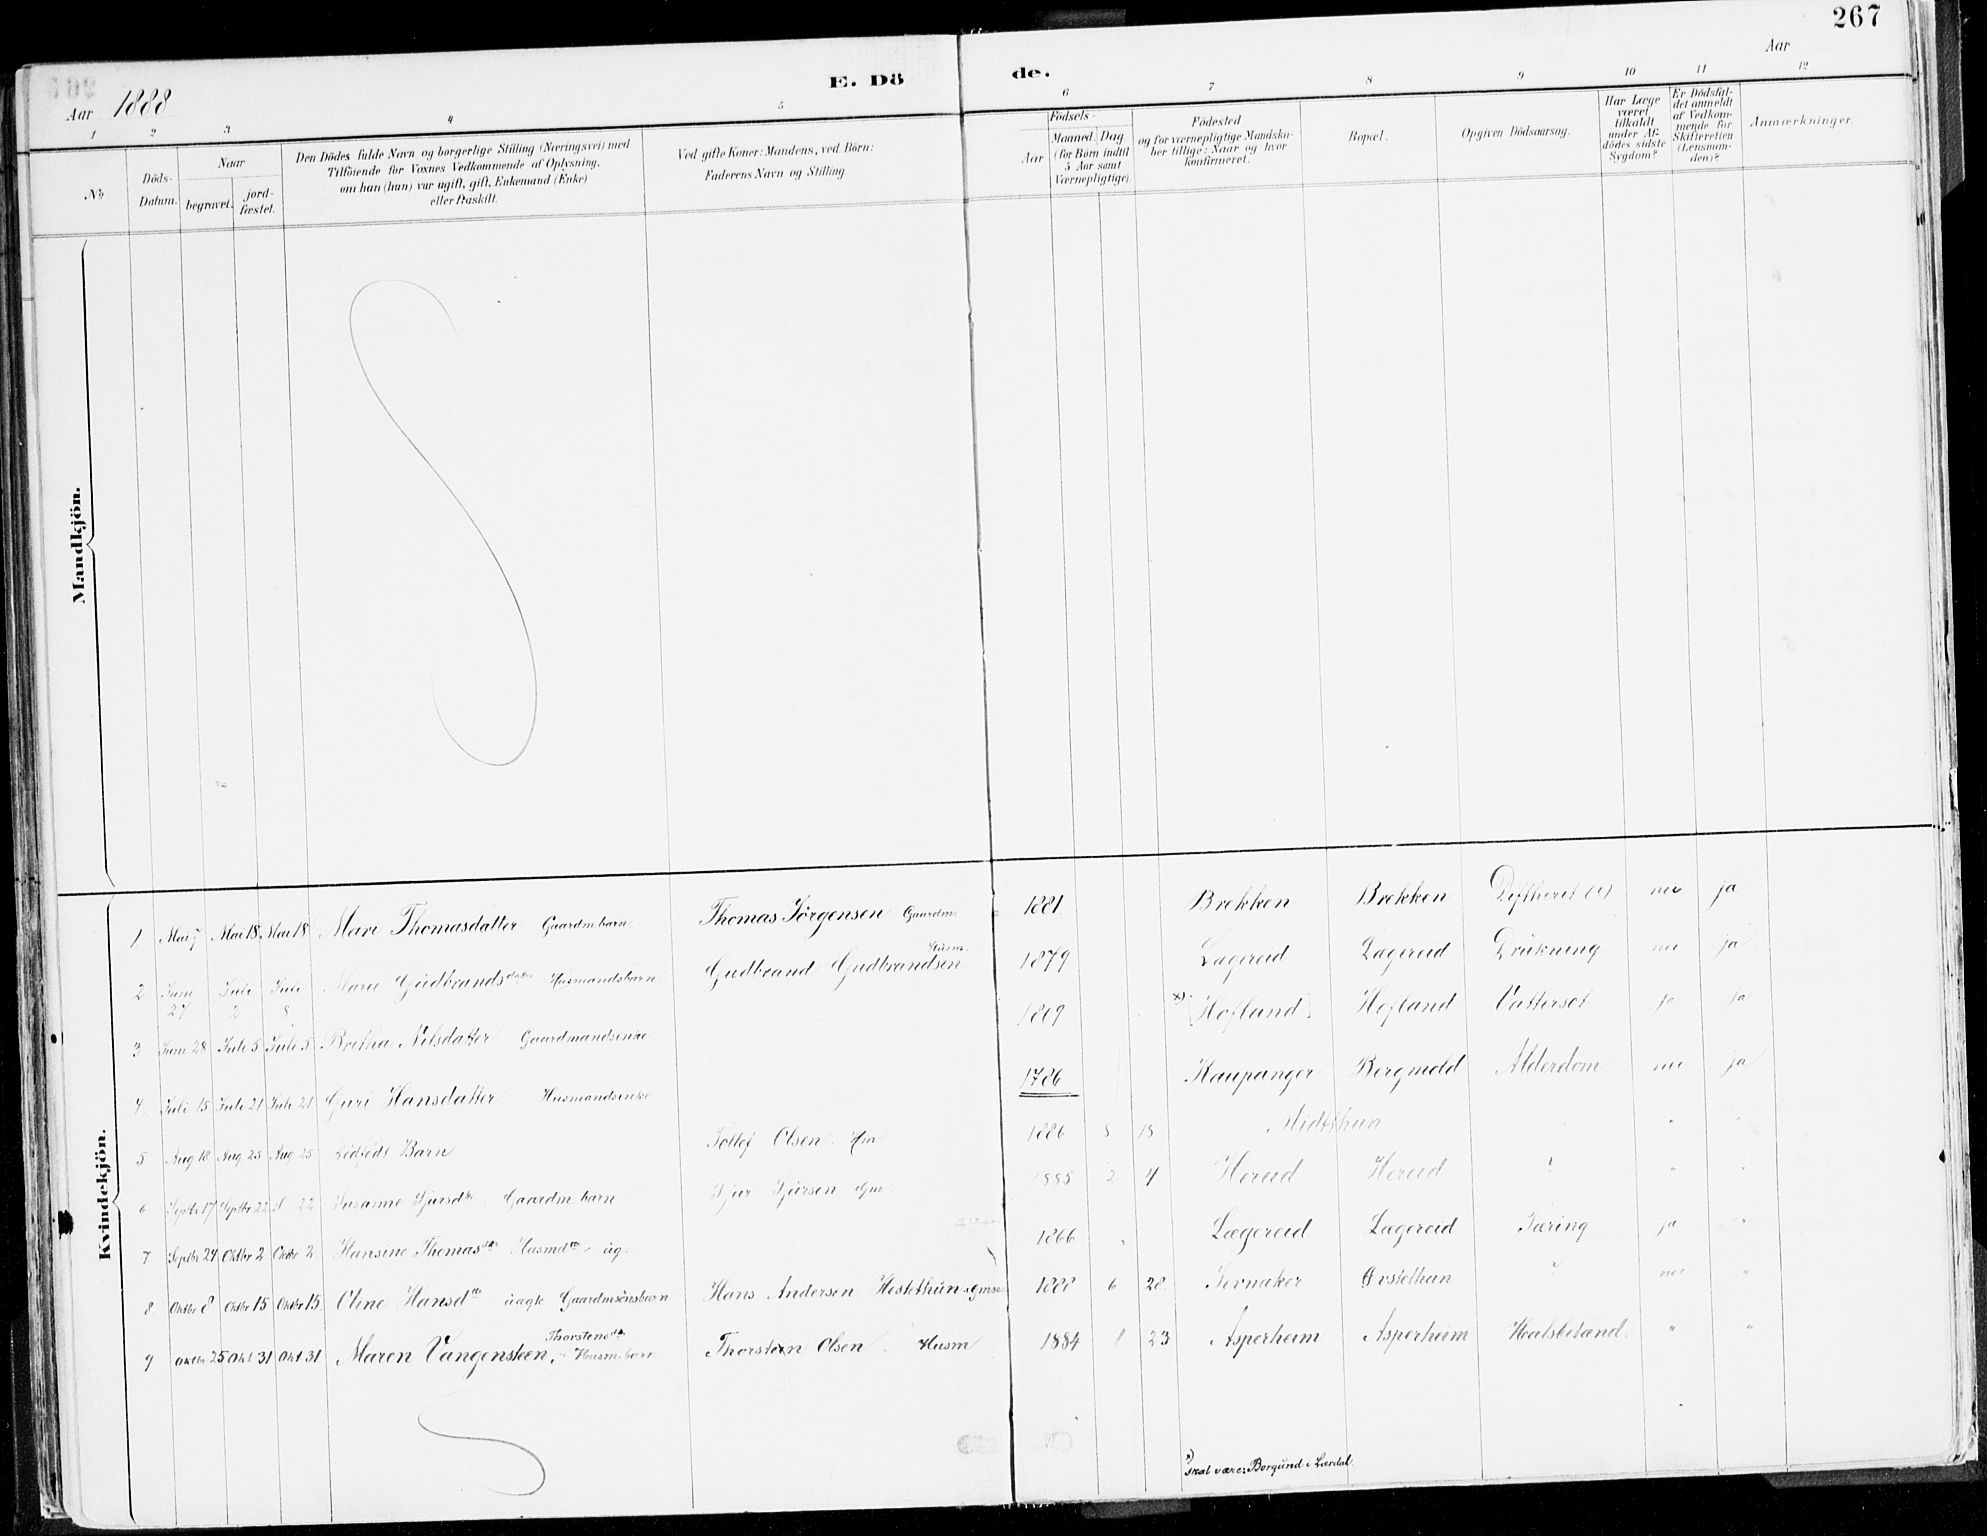 267
Aar 1888
E. Dö
de.
Aar
1 2 3 4 5 6 7 8 9 10 11 12
No
Döds-
Datum.
Naar
begravet.
jord-
fæstet.
Den Dödes fulde Navn og borgerlige Stilling (Næringsvei) med
Tilföiende for Voxnes Vedkommende af Oplysning,
om han (hun) var ugift, gift, Enkemand (Enke)
eller fraskilt.
Ved gifte Koner: Mandens, ved Börn:
Faderens Navn og Stilling
Födsels-
Aar
Maaned. Dag
(for Börn indtil
5 Aar samt
Værnepligtige).
Födested
og for værnepligtige Mandska-
ber tillige: Naar og hvor
konfirmeret.
Bopæl.
Opgiven Dödsaarsag.
Har Læge
været
tilkaldt
under Af-
dödes sidste
Sygdom?
Er Dödsfal-
det anmeldt
af Vedkom-
mende for
Skifteretten
(Lensman-
den)?
Anmærkninger.
Mandkjön.
Kvindekjön.
1 Mai 7 Mai 18 Mai 18 Mari Thomasdatter Gaardm. barn Thomas Jørgensen Gaardm. 1881 Brekken Brekken Diftherit nei ja
2 Juni 27 Juli 2 Juli 8 Mari Gudbrandsdatter Husmandsbarn Gudbrand Gudbrandsen Husm. 1879 Lægreid Lægreid Drukning nei ja
3 Juni 28 Juli 5 Juli 5 Bretha Nilsdatter Gaardmandsenke 1809 x) [Hofland] Hofland Vattersot ja ja
4 Juli 15 Juli 21 Juli 21 Guri Hansdatter Husmandsenke 1786 Kaupanger Bergmold Alderdom nei ja
5 Aug 18 Aug 25 Aug 25 Dödfödt Barn Tollef Olsen Hm 1886 8 18 Midtthun "
6 Septbr 17 Septbr 22 S. 22 Susanne Sjursdtr Gaardm barn Sjur Sjursen Gm 1885 2 4 Hereid Hereid ? " "
7 Septbr 24 Oktbr 2 Oktbr 2 Hansine Thomasdtr Husmdtr ug. 1866 " Lægereid Lægereid Tæring ja "
8 Oktbr 8 Oktbr 15 Oktbr 15 Oline Hansdtr uægte Gaardmsönsbarn Hans Andersen Hestethun 1888 6 28 Jevnaker Øvstethun ? nei "
9 Oktbr 25 Okt 31 Okt 31 Maren Vangensteen, Thorstensdtr Husm. barn Thorstein Olsen Husm 1884 1 23 Asperheim Asperheim Halsbetænd. " "
x) skal være: Borgund i Lærdal.